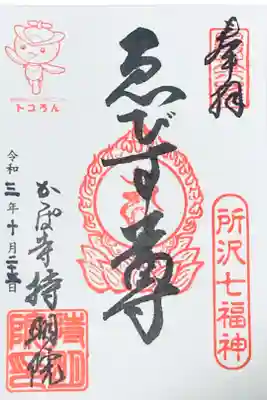 奉拝
所沢七福神
ゑびす尊
トコろん
令和三年十月二十一日
かっぱ寺持明院